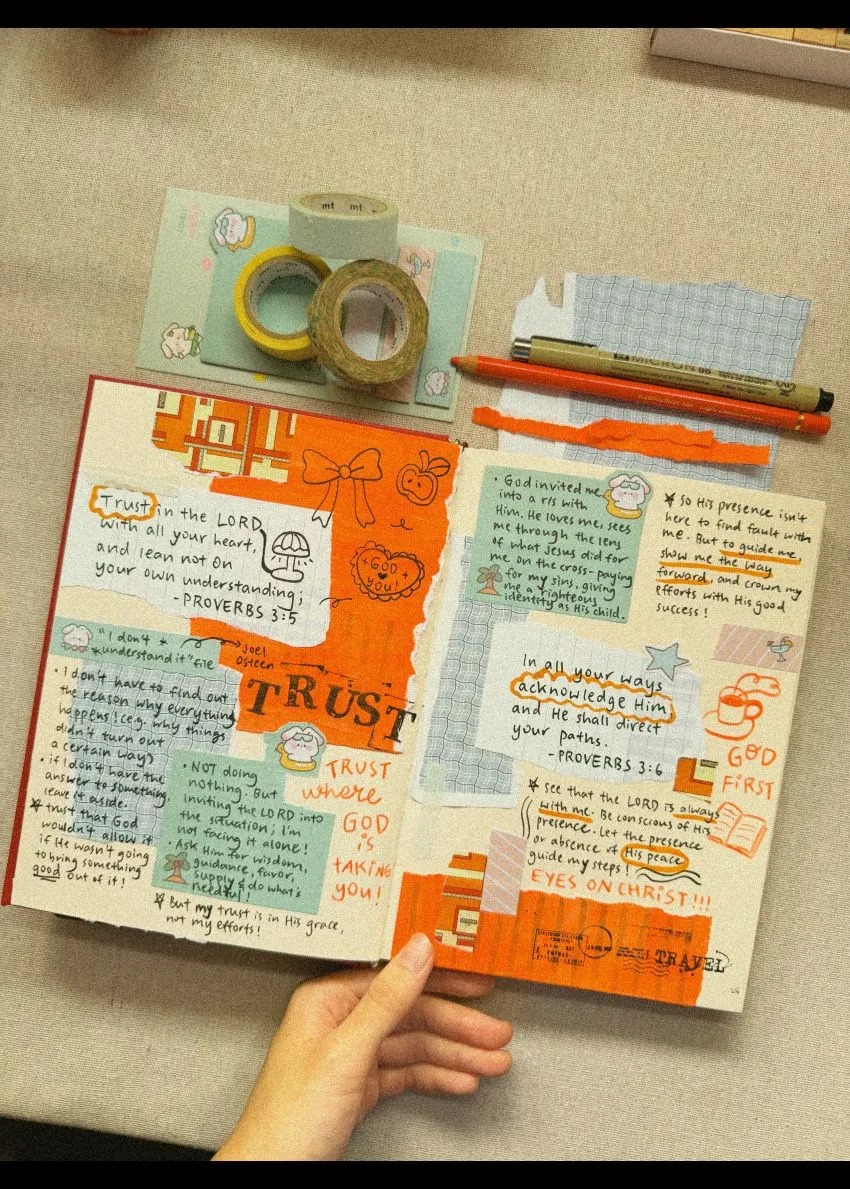 mt mt
MICRON 05
Trust in the LORD
with all your heart,
and lean not on
your own understanding;
-PROVERBS 3:5
GOD
♥
YOU!
"I don't *
*understand it" file
Joel
Osteen
TRUST
• I don't have to find out
the reason why everything
happens! (e.g. why things
didn't turn out
a certain way)
• if I don't have the
answer to something,
leave it aside.
☆ trust that God
wouldn't allow it
if He wasn't going
to bring something
good out of it!
• NOT doing
nothing. But
inviting the LORD into
the situation; I'm
not facing it alone!
• Ask Him for wisdom,
guidance, favor,
supply & do what's
needful!
TRUST
where
GOD
is
TAKING
YOU!
☆ But my trust is in His grace,
not my efforts!
• God invited me
into a r/s with
Him. He loves me, sees
me through the lens
of what Jesus did for
me on the cross - paying
for my sins, giving
me a righteous
identity as His child.
☆ So His presence isn't
here to find fault with
me. But to guide me,
show me the way
forward, and crown my
efforts with His good
success!
In all your ways
acknowledge Him,
and He shall direct
your paths.
-PROVERBS 3:6
GOD
FIRST
☆ see that the LORD is always
with me. Be conscious of His
presence. Let the presence
or absence of His peace
guide my steps!
EYES ON CHRIST!!!
TRAVEL